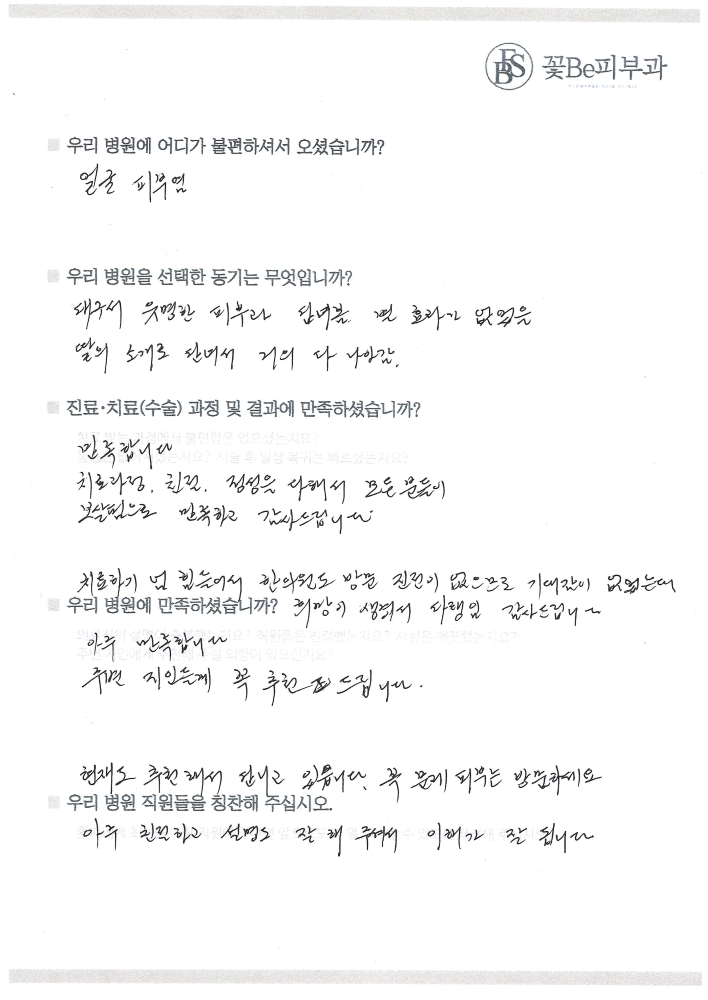 FBS 꽃Be피부과
우리 병원에 어디가 불편하셔서 오셨습니까?
얼굴 피부염
우리 병원을 선택한 동기는 무엇입니까?
대구서 유명한 피부과 다녀봄 별 효과가 없었음
딸의 소개로 다녀서 거의 다 나아감.
진료·치료(수술) 과정 및 결과에 만족하셨습니까?
만족합니다
치료과정, 친절, 정성을 다해서 모든 분들이
보살핌으로 만족하고 감사드립니다
치료하기 넘 힘들어서 한의원도 방문 진전이 없으므로 기대감이 없었는데
우리 병원에 만족하셨습니까? 희망이 생겨서 다행임 감사드립니다
아주 만족합니다
주변 지인들께 꼭 추천 드립니다.
현재도 추천해서 다니고 있습니다. 꼭 문제 피부는 방문하세요
우리 병원 직원들을 칭찬해 주십시오.
아주 친절하고 설명도 잘 해 주셔서 이해가 잘 됩니다